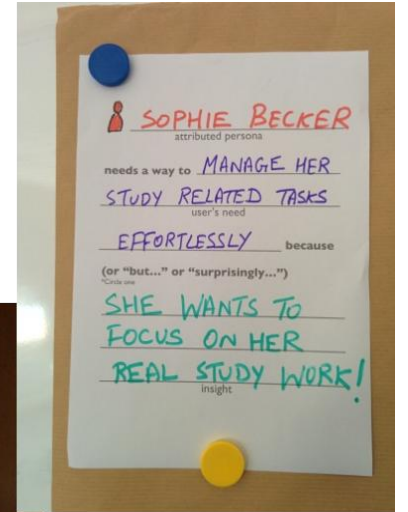 SOPHIE BECKER
attributed persona
needs a way to MANAGE HER
STUDY RELATED TASKS
user's need
EFFORTLESSLY because
(or "but..." or "surprisingly...")
*Circle one
SHE WANTS TO
FOCUS ON HER
REAL STUDY WORK!
insight